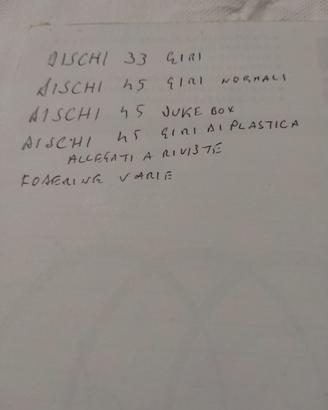 DISCHI 33 GIRI
DISCHI 45 GIRI NORMALI
DISCHI 45 JUKE BOX
DISCHI 45 GIRI DI PLASTICA
ALLEGATI A RIVISTE
FODERINE VARIE